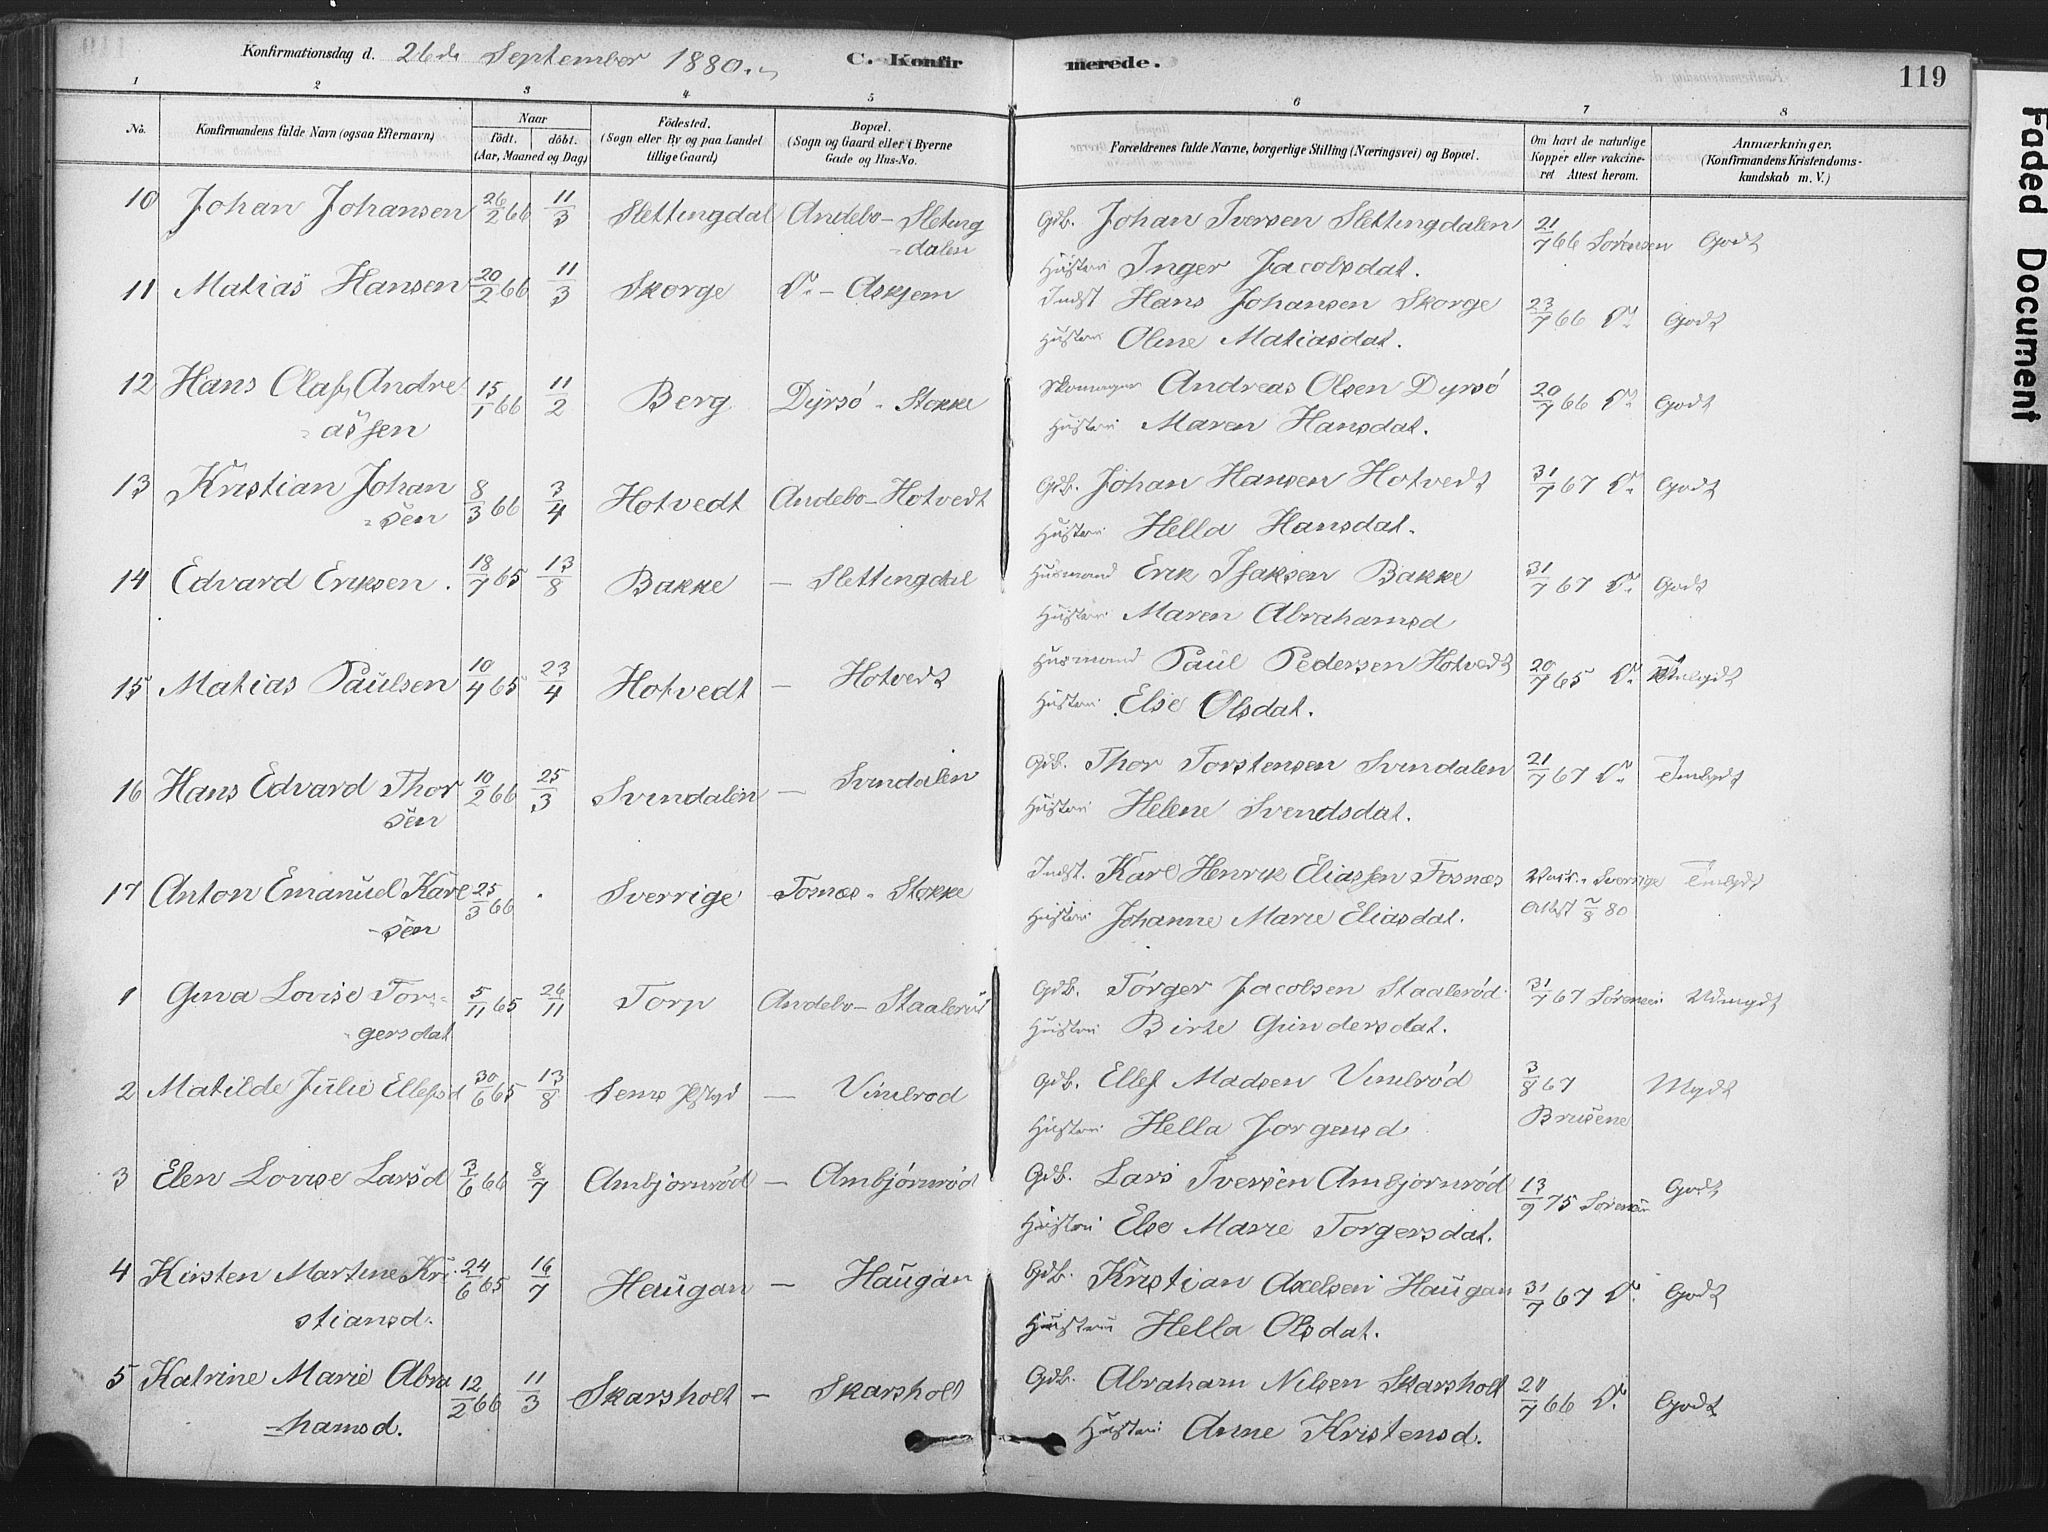 Konfirmationsdag d. 26de September 1880. C. Konfirmerede. 119
1 2 3 4 5 6 7 8
No. Konfirmandens fulde Navn (ogsaa Efternavn) Naar født. døbt. (Aar, Maaned og Dag) Fødested. (Sogn eller By og paa Landet tillige Gaard) Bopæl. (Sogn og Gaard eller i Byerne Gade og Hus-No. Forældrenes fulde Navne, borgerlige Stilling (Næringsvei) og Bopæl. Om havt de naturlige Kopper eller vakcineret Attest herom. Anmærkninger. (Konfirmandens Kristendomskundskab m. V.)
10 Johan Johansen 26/2 66 11/3 Slettingdal Andebo - Sletingdalen Gdb. Johan Iversen Slettingdalen 21/7 66 Sørensen Godt
Hustru Inger Jacobsdat.
11 Matias Hansen 20/2 66 11/3 Skorge Do - Askjem Indst Hans Johansen Skorge 23/7 66 Do Godt
Hustru Oline Matiasdat.
12 Hans Olaf Andre 15/1 66 11/2 Berg Dyrsö - Stokke Skomager Andreas Olsen Dyrsö 20/7 66 Do Godt
=assen Hustru Maren Hansdat.
13 Kristian Johan 8/3 66 3/4 Hotvedt Andebo - Hotvedt Gdb. Johan Hansen Hotvedt 31/7 67 Do Godt
=sen Hustru Hella Hansdat.
14 Edvard Eriksen. 18/7 65 13/8 Bakke - Slettingdal Husmand Erik Isaksen Bakke 31/7 67 Do Godt
Hustru Maren Abrahamsd
15 Matias Paulsen 10/4 65 23/4 Hotvedt - Hotvedt Husmand Paul Pedersen Hotvedt 20/7 65 Do Tmlgdt
Hustru Else Olsdat.
16 Hans Edvard Thor 10/2 66 25/3 Svindalen - Svindalen Gdb. Thor Torstensen Svindalen 21/7 67 Do Tmlgdt
sen Hustru Helene Svendsdat.
17 Anton Emanuel Karl 25/3 66 . Sverrige Fosnæs - Stokke Indst. Karl Henrik Eliassen Fosnæs Vakk. Sverrige Tmlgdt
-sen Hustru Johanne Marie Eliasdat. Attst /8 80
1 Gina Lovise Tor- 5/11 65 26/11 Torp Andebo - Staalerød Gdb. Torger Jacobsen Staalerød 31/7 67 Sørensen Udmgdt
-gersdat Hustru Birte Gundersdat.
2 Matilde Julie Ellefsd 30/6 65 13/8 Sems - Vimlrød Gdb. Ellef Madsen Vimlrød 3/8 67 Mgdt
Hustru Hella Jorgensd Brusene
3 Elen Lovise Larsd 3/6 66 8/7 Ambjørnrød - Ambjørnrød Gdb. Lars Iversen Ambjørnrød 13/9 75 Sørensen Godt
Hustru Else Marie Torgersdat.
4 Kirsten Martine Kri 24/6 65 16/7 Haugan - Haugan Gdb. Kristian Axelsen Haugan 31/7 67 Do Godt
stiansd. Hustru Hella Olsdat.
5 Katrine Marie Abra 12/2 66 11/3 Skarsholt - Skarsholt Gdb. Abraham Nilsen Skarsholt 21/7 66 Do Godt
=hamsd. Hustru Anne Kristensd.
Faded Document